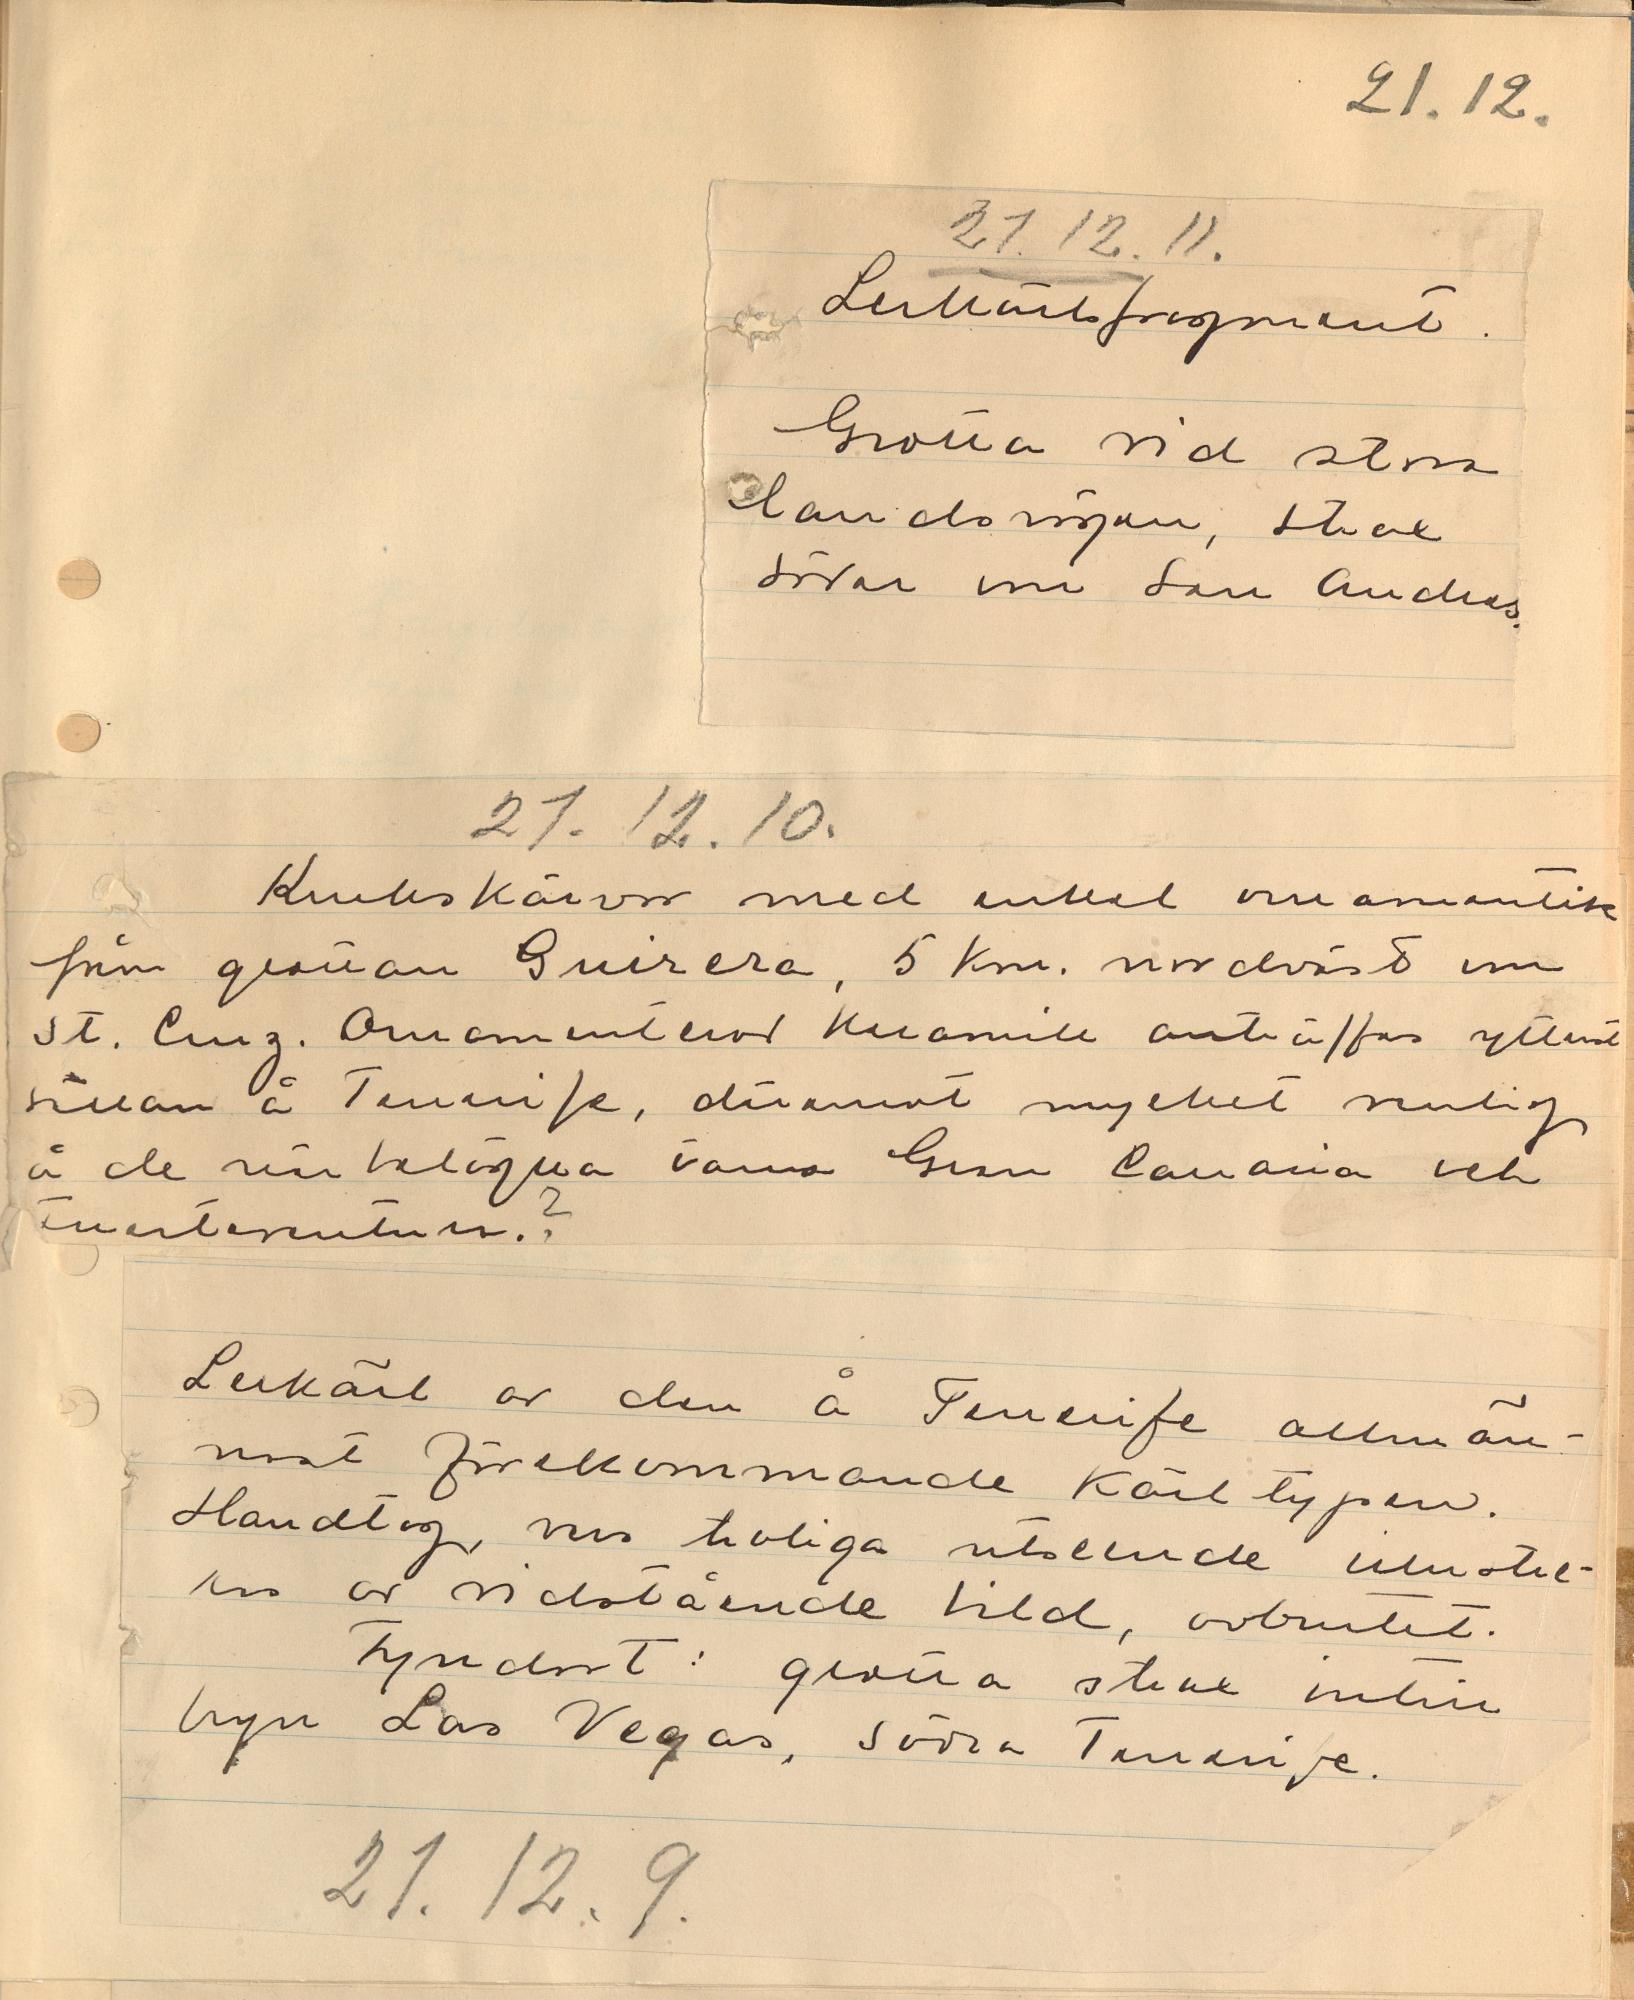 21.12.
21.12.11.
Lerkärlsfragment.
Grotta vid stora
landsvägen, strax
söder om San Andres.
21.12.10.
Krukskärvor med enkel ornamentik
från grottan Guirera, 5 km. nordväst om
St. Cruz. Ornamenterad keramik anträffas ytterst
sällan å Tenerife, däremot mycket vanlig
å de närbelägna öarna Gran Canaria och
Fuerteventura.?
Lerkärl av den å Tenerife allmän-
nast förekommande kärltypen.
Handtag, vars troliga utseende illustre-
ras av vidstående bild, avbrutet.
Fyndort: grotta strax intill
byn Las Vegas, södra Tenerife.
21.12.9.